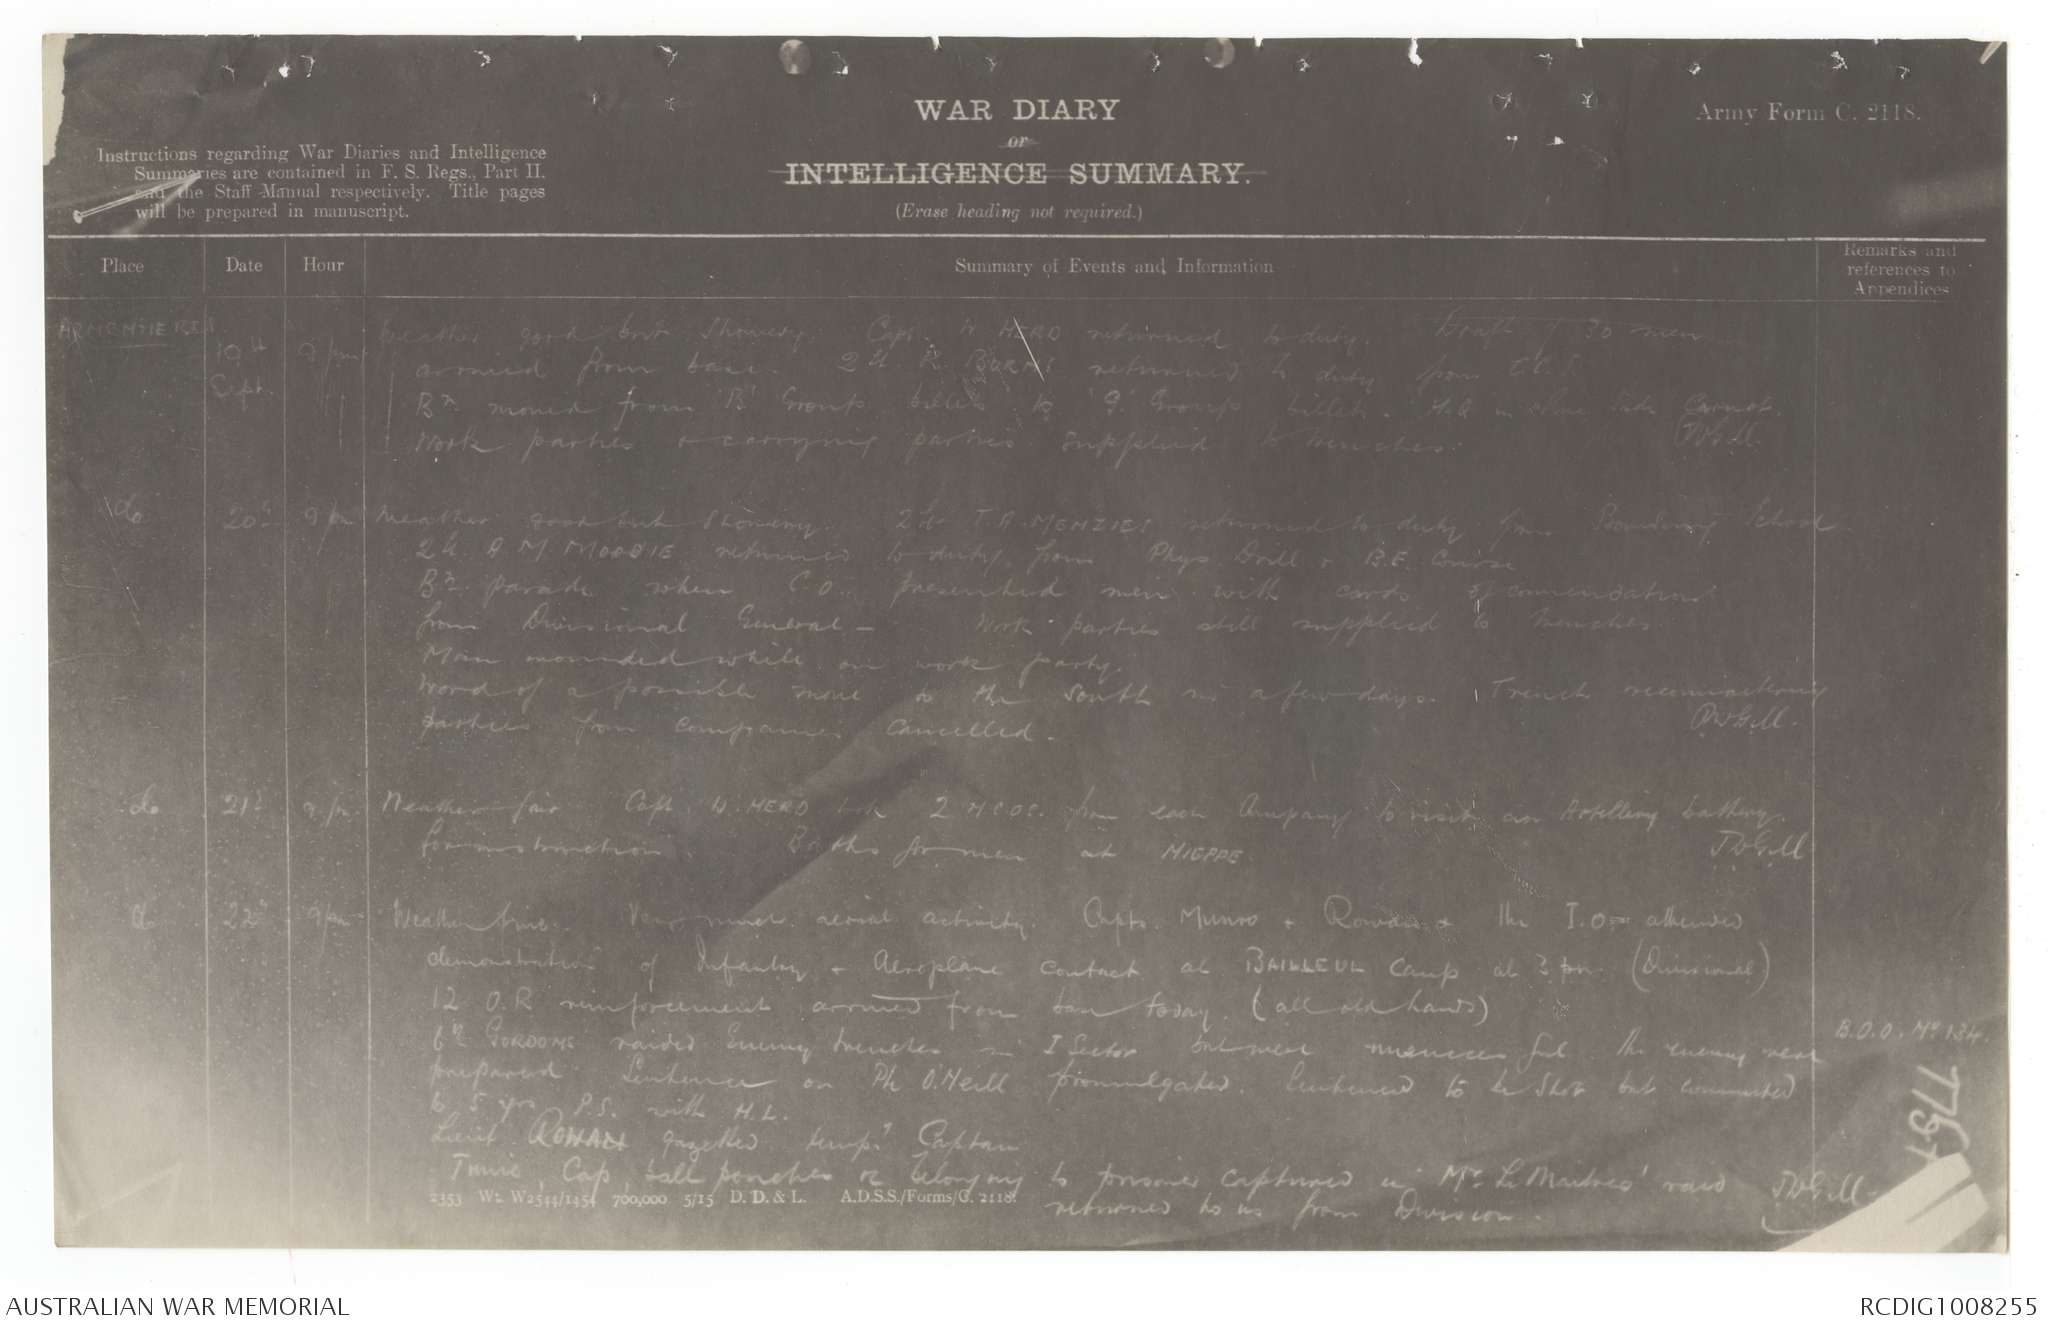 WAR DIARY
or
INTELLIGENCE SUMMARY.
(Erase heading not required.)
Army Form C. 2118.
Instructions regarding War Diaries and Intelligence
Summaries are contained in F. S. Regs., Part II.
and the Staff Manual respectively. Title pages
will be prepared in manuscript.
Place Date Hour Summary of Events and Information
Remarks and
references to
Appendices
ARMENTIERES 19th Sept. 9 pm Weather good but showery. Capt. W HERD returned to duty. Draft of 30 men
arrived from base. 2 Lt. R. BURNS returned to duty from
Bn moved from 'B' Group billets to Group billets. HQ in Carnot.
Work parties & carrying parties supplied to trenches. JWGill.
do 20th 9 pm Weather good but showery. 2 Lt T. A. MENZIES returned to duty from Bombing School
2 Lt. A. M. MOODIE returned to duty from Phys. Drill & B.F. Course
Bn parade when C.O. presented men with cards of commendation
from Divisional General — Work parties still supplied to trenches.
Man wounded while on work party.
Word of a possible move to the South in a few days. Trench reconnoitring
parties from companies cancelled. JWGill.
do 21st 9 pm Weather fair Capt. W. HERD took 2 N.C.Os. from each Company to visit an Artillery battery
for instruction. Baths for men at NIEPPE. JWGill
do 22nd 9 pm Weather fine. Very much aerial activity. Capts. Munro & Rowan & the I.O. attended
demonstration of Infantry & Aeroplane contact at BAILLEUL Camp at pm (Divisional)
12 O.R. reinforcement arrived from base today. (all old hands)
6th GORDONS raided Enemy trenches in I Sector but were the enemy were B.O.O. No 134.
prepared. Sentence on Pte O'Neill promulgated. Sentenced to be shot but commuted
to 5 yrs P.S. with H.L.
Lieut ROWAN gazetted tempy Captain
Tunic, Cap, ball pouches &c belonging to prisoner captured in Mr Le Maitres' raid JWGill.
returned to us from Division.
2353 Wt. W2544/1454 700,000 5/15 D. D. & L. A.D.S.S./Forms/C. 2118.
AUSTRALIAN WAR MEMORIAL
RCDIG1008255